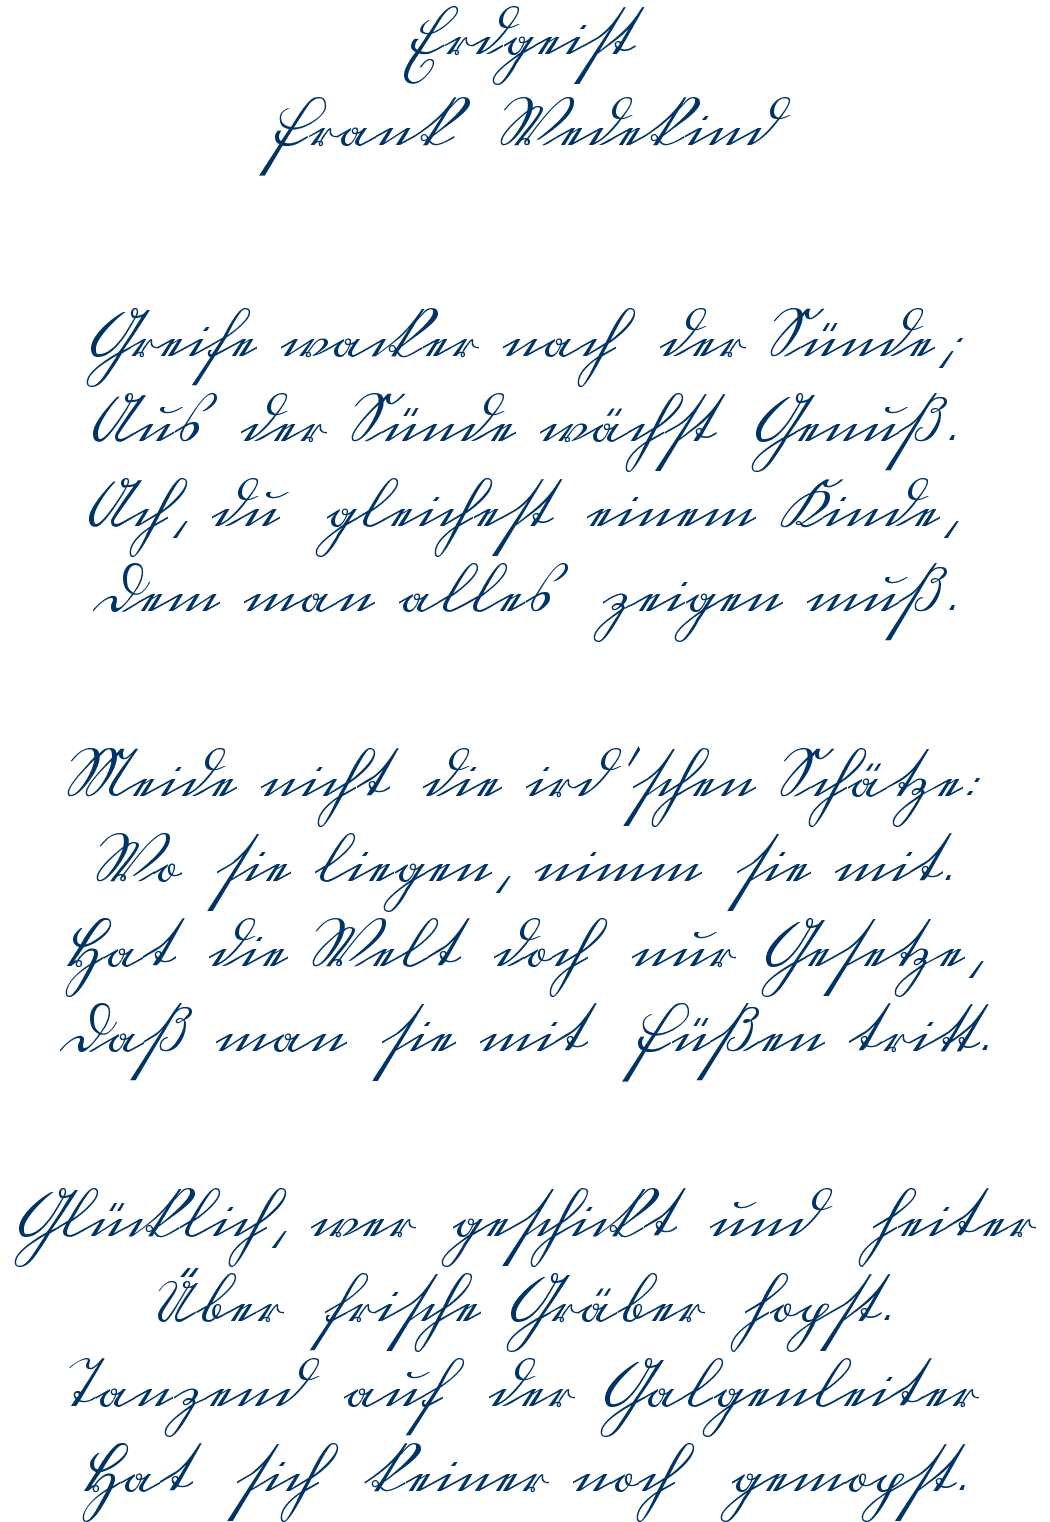 Erdgeist
Frank Wedekind
Greife wacker nach der Sünde;
Aus der Sünde wächst Genuß.
Ach, du gleichest einem Kinde,
Dem man alles zeigen muß.
Meide nicht die ird'schen Schätze:
Wo sie liegen, nimm sie mit.
Hat die Welt doch nur Gesetze,
Daß man sie mit Füßen tritt.
Glücklich, wer geschickt und heiter
Über frische Gräber hopst.
Tanzend auf der Galgenleiter
Hat sich keiner noch gemopst.